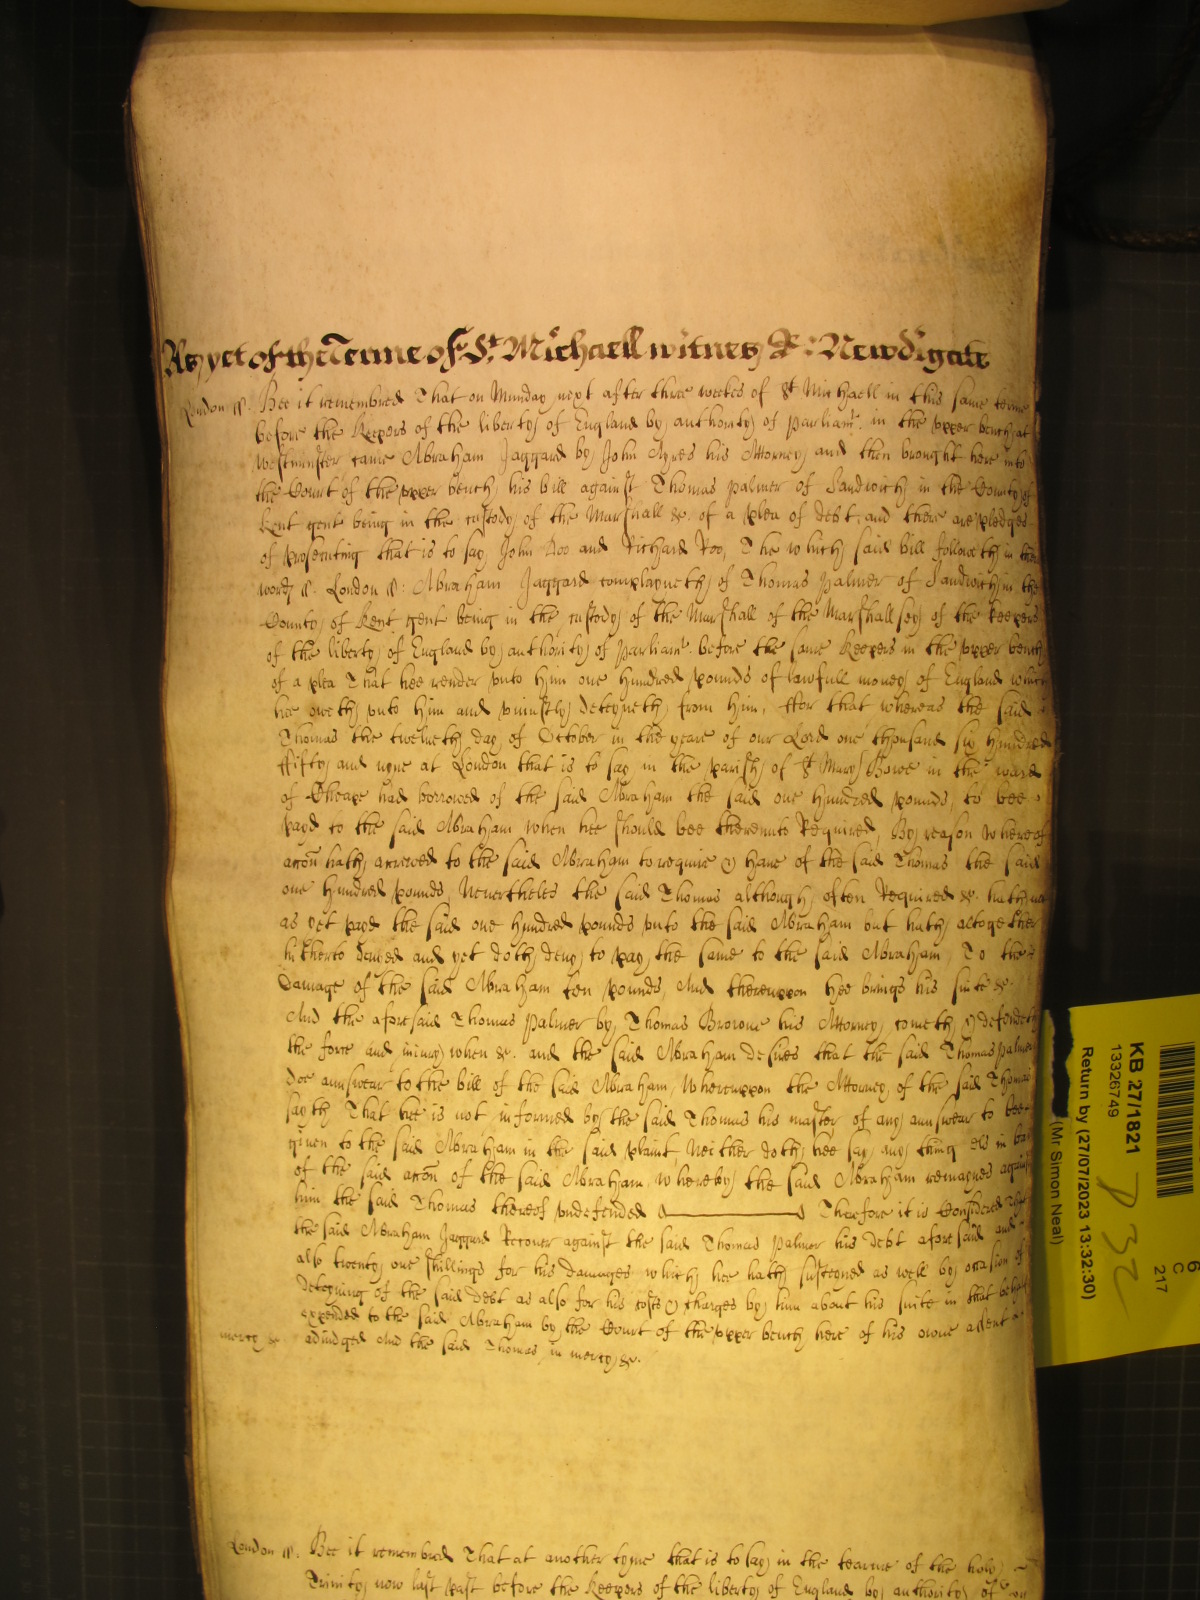 As yet of the Terme of St. Michaell witnes R: Newdigate
London ss. Bee it remembred That on Munday next after three weekes of St Michaell in this same terme
before the Keepers of the liberty of England by authority of Parliamt. in the upper bench at
Westminster came Abraham Jaggard by John Ayres his Attorney and then brought here into
the Court of the upper bench his bill against Thomas Palmer of Sandwich in the County of
Kent gent being in the custody of the Marshall &c. of a plea of debt, and there are pledges
of prosecuting that is to say John Doo and Richard Roo, The which said bill followeth in these
words ss. London ss: Abraham Jaggard complayneth of Thomas Palmer of Sandwich in the
County of Kent gent being in the custody of the Marshall of the Marshallsey of the keepers
of the liberty of England by authority of Parliamt. before the same Keepers in the upper bench
of a plea That hee render unto him one hundred pounds of lawfull money of England which
hee oweth unto him and uniustly deteyneth from him, ffor that whereas the said
Thomas the twelveth day of October in the yeare of our Lord one thousand six hundred
ffifty and nyne at London that is to say in the parish of St Mary Bowe in the ward
of Cheape had borrowed of the said Abraham the said one hundred pounds, to bee
payd to the said Abraham when hee should bee thereunto Required, By reason whereof
accon hath accrewed to the said Abraham to require & have of the said Thomas the said
one hundred pounds, Nevertheles the said Thomas although often Required &c. hath not
as yet payd the said one hundred pounds unto the said Abraham but hath altogether
hitherto denyed and yet doth deny to pay the same to the said Abraham, To the
damage of the said Abraham ten pounds, And thereuppon hee brings his suite &c.
And the aforesaid Thomas Palmer by Thomas Browne his Attorney cometh & defendeth
the force and iniury when &c. and the said Abraham desires that the said Thomas Palmer
doe aunswear to the bill of the said Abraham, Whereuppon the Attorney of the said Thomas
sayth That hee is not informed by the said Thomas his master of any aunswear to bee
given to the said Abraham in the said plaint Neither doth hee say any thing els in barr
of the said accon of the said Abraham, whereby the said Abraham remaynes against
him the said Thomas thereof undefended Therefore it is Considered That
the said Abraham Jaggard Recover against the said Thomas Palmer his debt aforesaid and
also twenty one shillings for his damages which hee hath susteyned as well by occasion of
deteyning of the said debt as also for his costs & charges by him about his suite in that behalf
expended to the said Abraham by the Court of the upper bench here of his owne assent
mercy &c adiudged And the said Thomas in mercy &c.
London ss. Bee it remembred That at another tyme that is to say in the tearme of the holy
Trinity now last past before the Keepers of the liberty of England by authority of
KB 27/1821
13326749
Return by (27/07/2023 13:32:30)
(Mr Simon Neal)
6
C
217